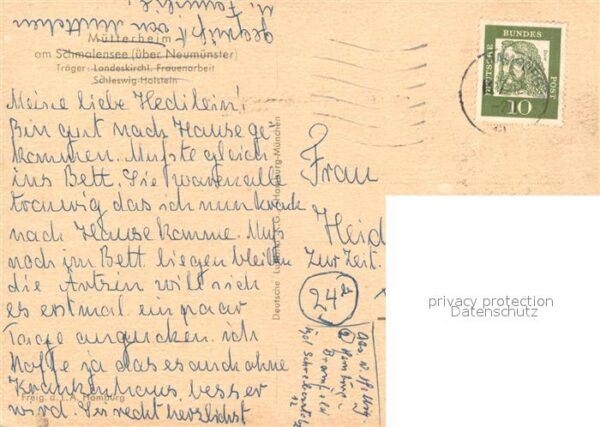 Mütterheim
am Schmalensee (über Neumünster)
Träger: Landeskirchl. Frauenarbeit
Schleswig-Holstein
Meine liebe Hedilein!
Bin gut nach Hause ge-
kommen. Mußte gleich
ins Bett. Sie waren alle
traurig das ich nun krank
nach Hause komme. Mus
noch im Bett liegen bleiben
die Ärtzin will sich
es erstmal ein paar
Tage angucken. ich
hoffe ja das es auch ohne
Krankenhaus besser
wird. Sei recht herzlichst
gegrüßt von Muttchen
u. Familie
Freig. d. L.A. Hamburg
Deutsche Luftbild K.G. Hamburg-München
DEUTSCHE BUNDESPOST
10
Frau
Heid
Zur Zeit.
24
Abs.
Hamburg-
Bramfeld
12
privacy protection
Datenschutz